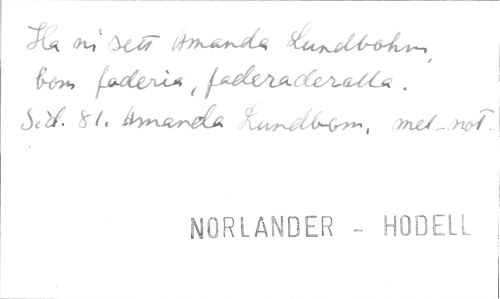 Ha ni sett Amanda Lundbohm,
bom faderia, faderaderalla.
Sid. 81. Amanda Lundbom, mel-not.
NORLANDER - HODELL